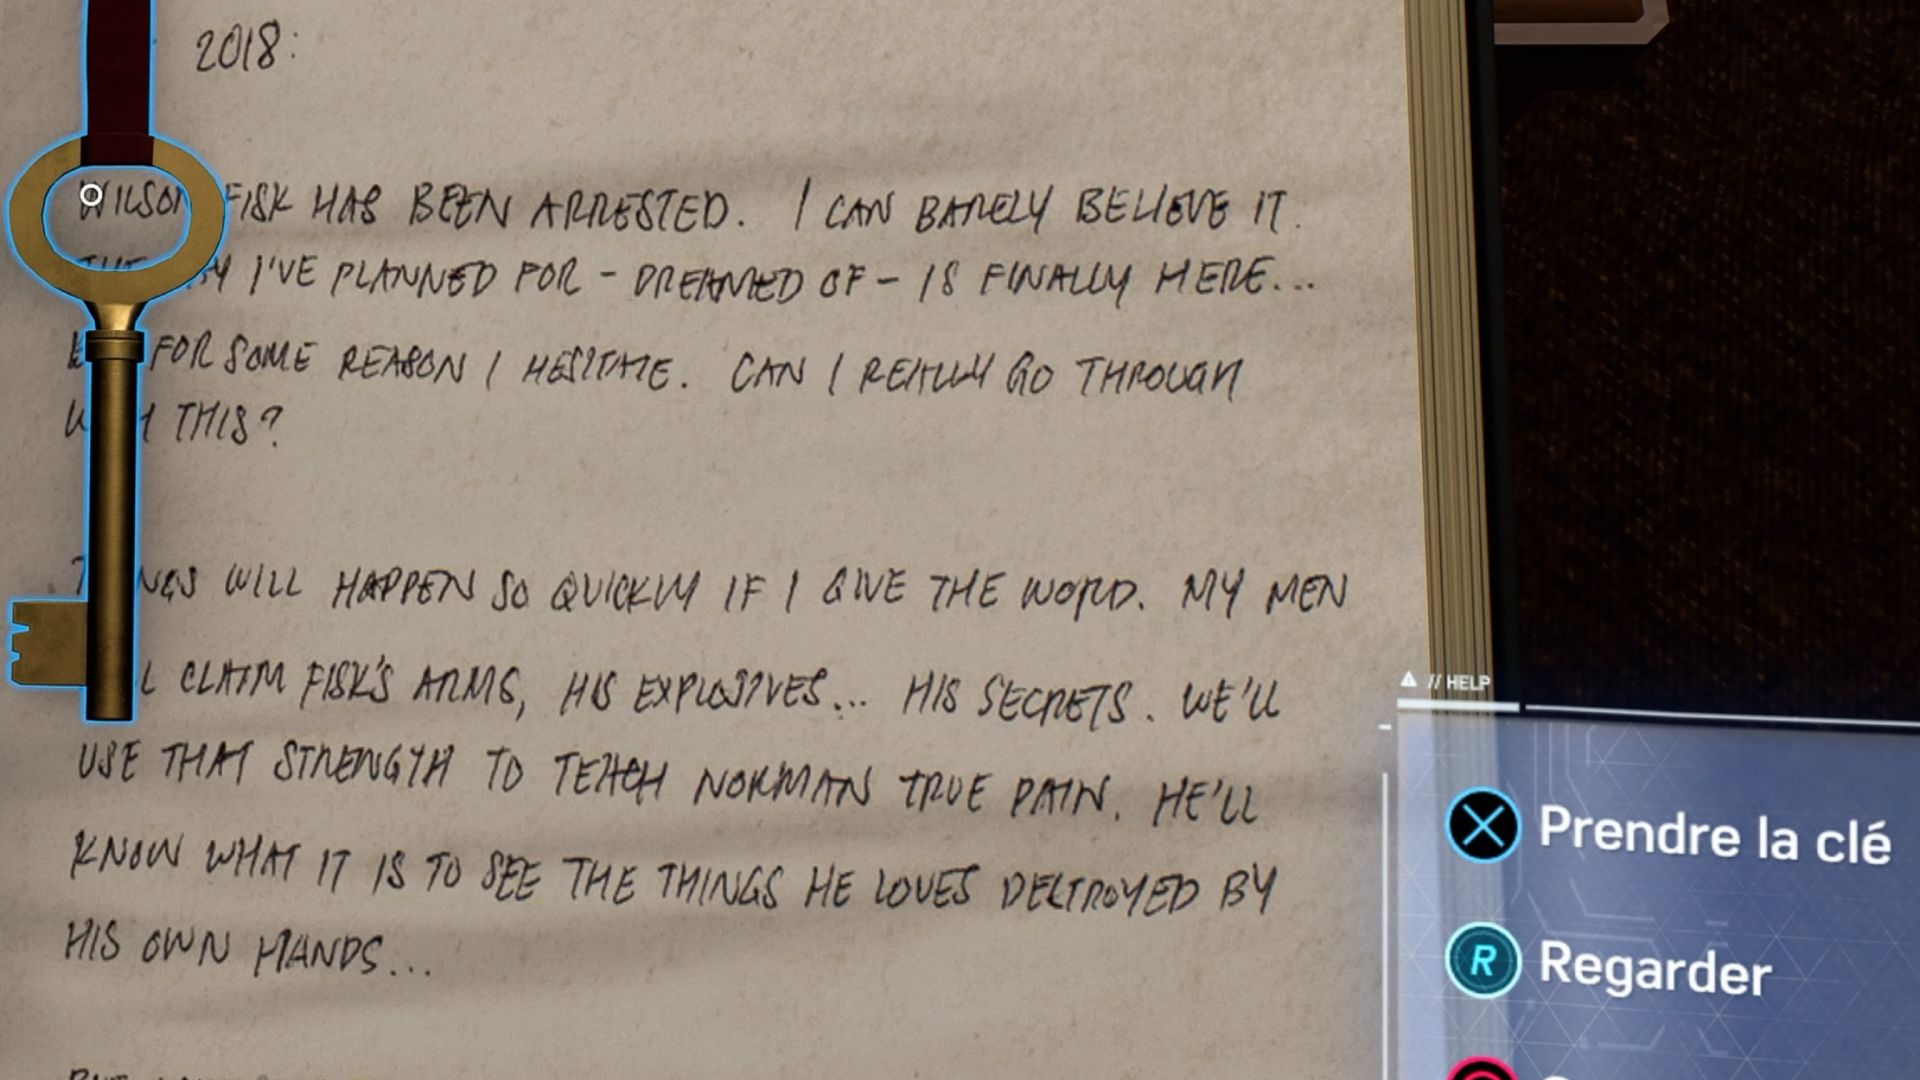 2018:
WILSON FISK HAS BEEN ARRESTED. I CAN BARELY BELIEVE IT.
I'VE PLANNED FOR - DREAMED OF - IS FINALLY HERE...
FOR SOME REASON I HESITATE. CAN I REALLY GO THROUGH
THIS?
WILL HAPPEN SO QUICKLY IF I GIVE THE WORD. MY MEN
CLAIM FISK'S ARMS, HIS EXPLOSIVES... HIS SECRETS. WE'LL
USE THAT STRENGTH TO TEACH NORMAN TRUE PAIN. HE'LL
KNOW WHAT IT IS TO SEE THE THINGS HE LOVES DESTROYED BY
HIS OWN HANDS...
// HELP
Prendre la clé
R Regarder